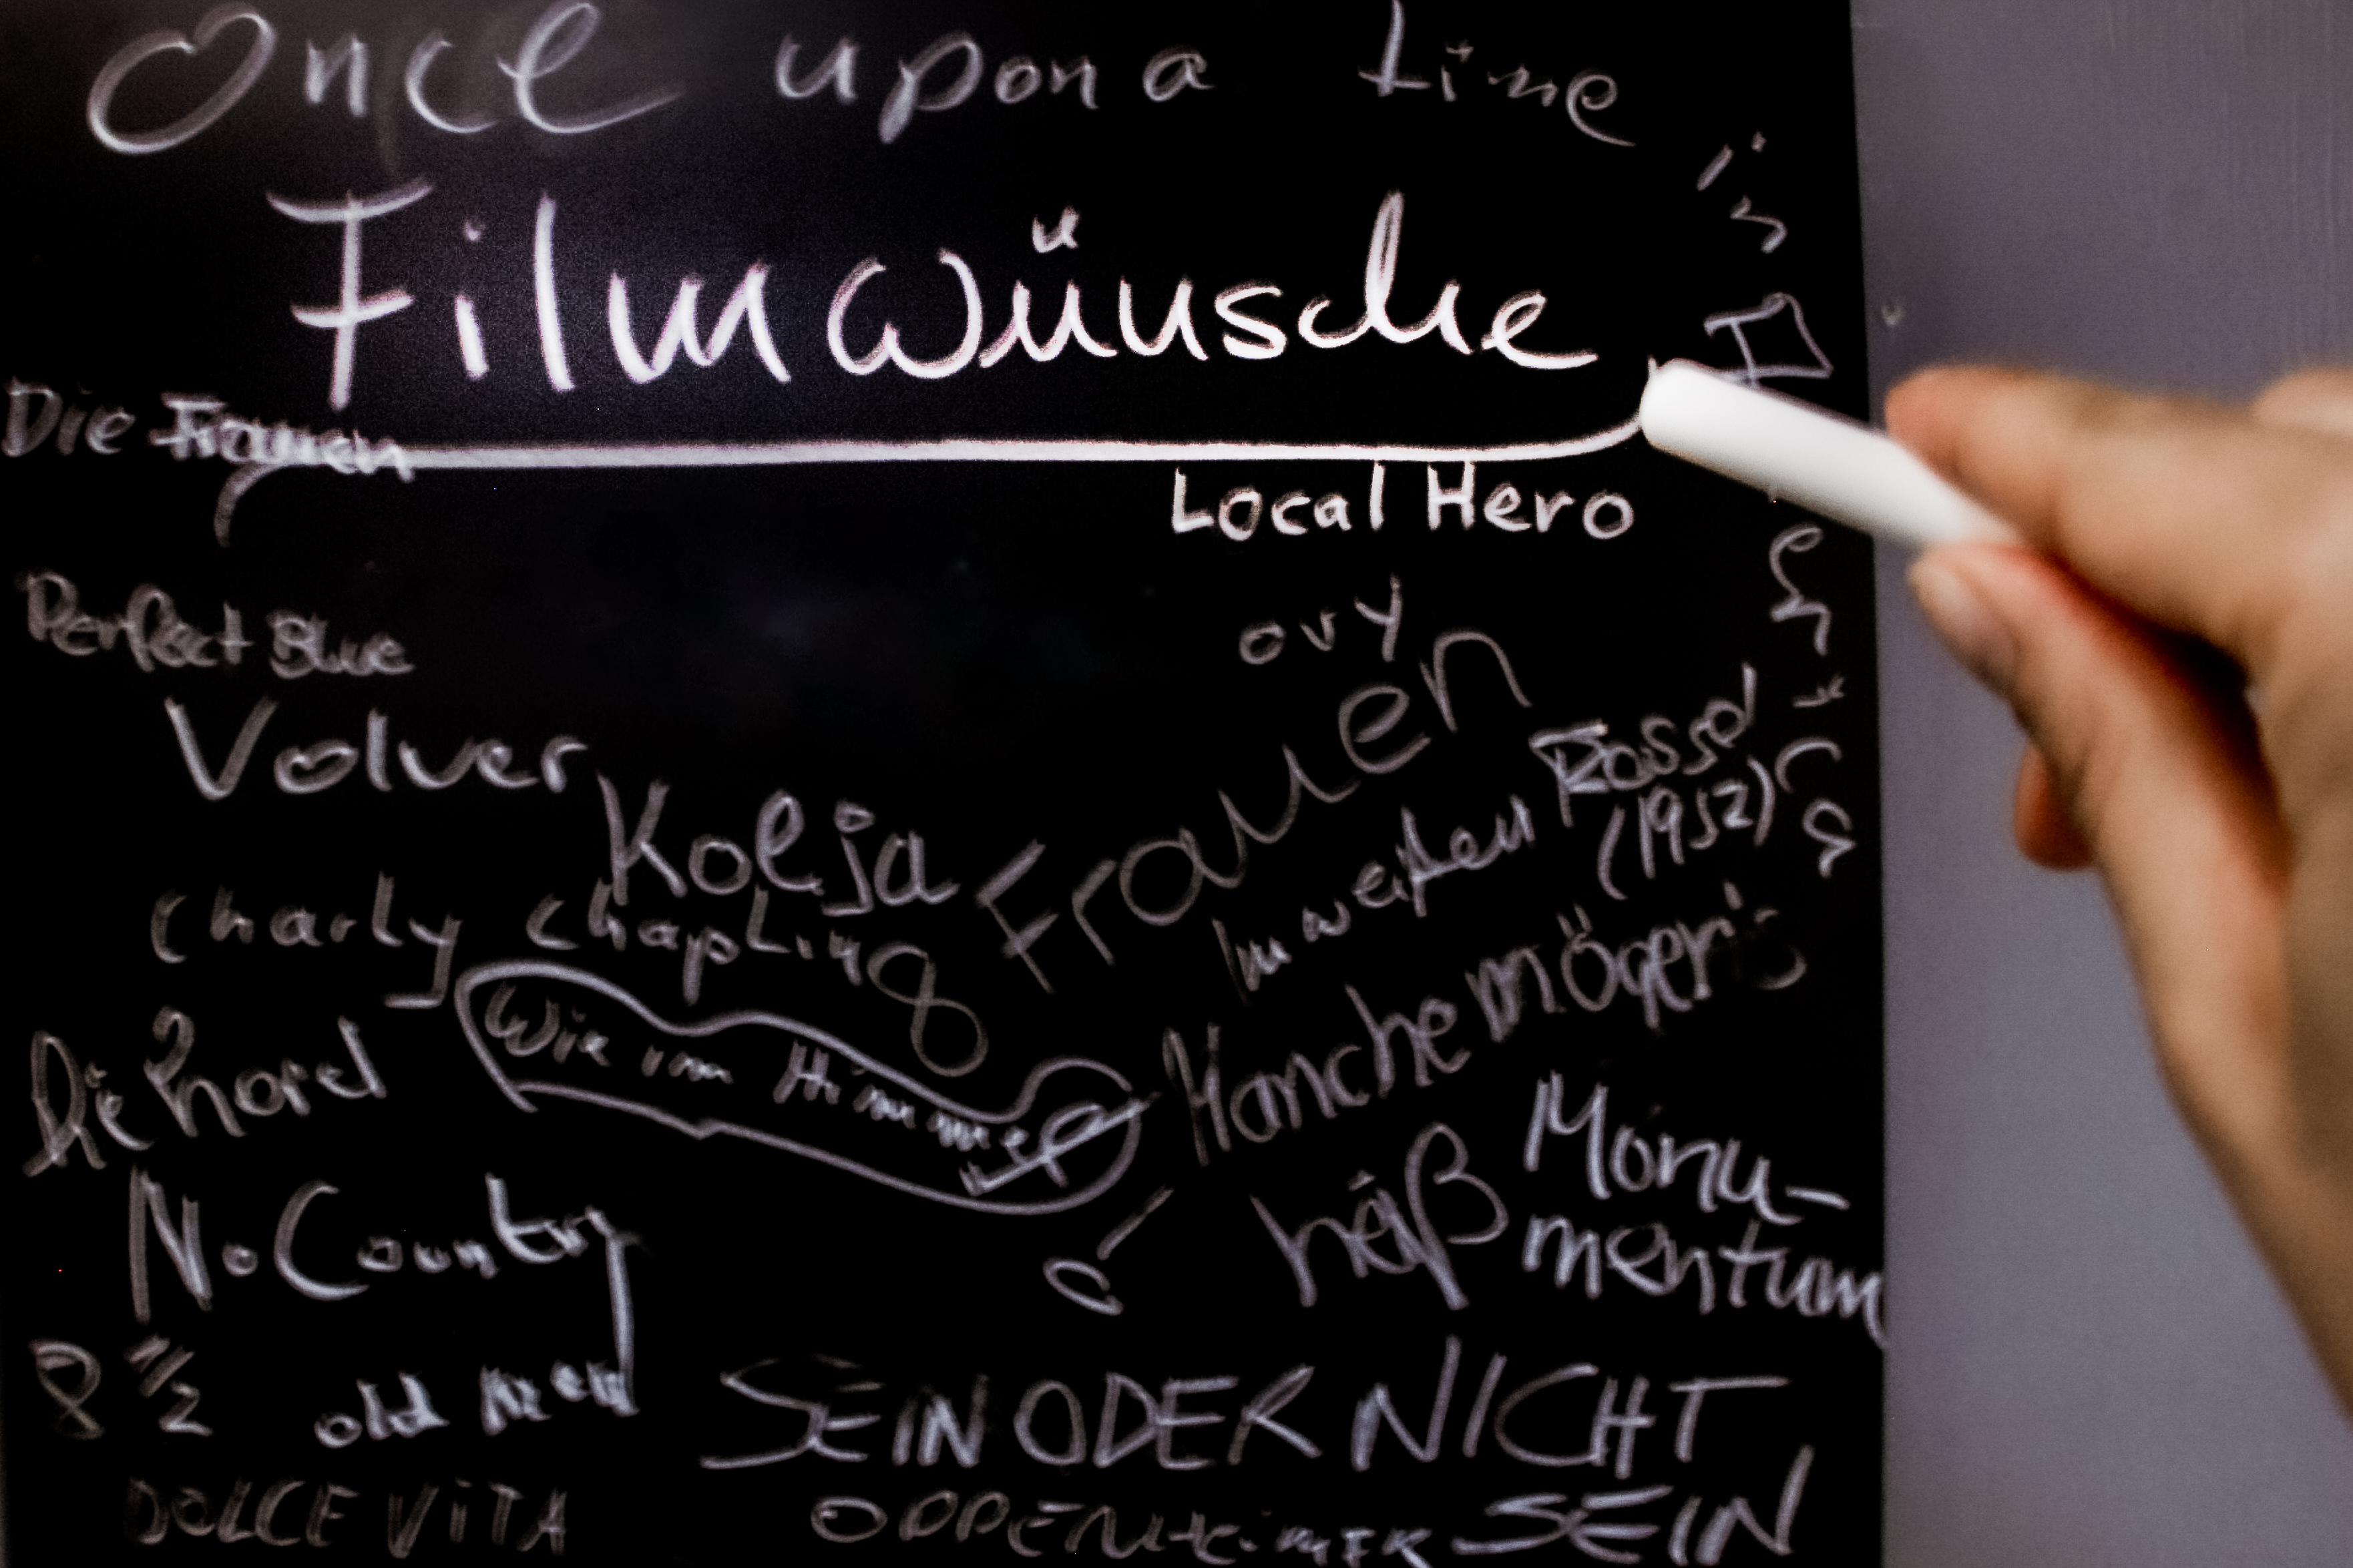 Once upon a time
in
Filmwünsche
Die Frauen
Local Hero
Perfect Blue
ovy
Volver
Frauen
Kolja
Im weißen Rössel
(1952)
Charly Chapling
Manche mögen's
heiß
Wie im Himmel
Die hard
Monu-
mentum
No Country
old men
8 1/2
SEIN ODER NICHT
SEIN
DOLCE VITA
OPPENHEIMER